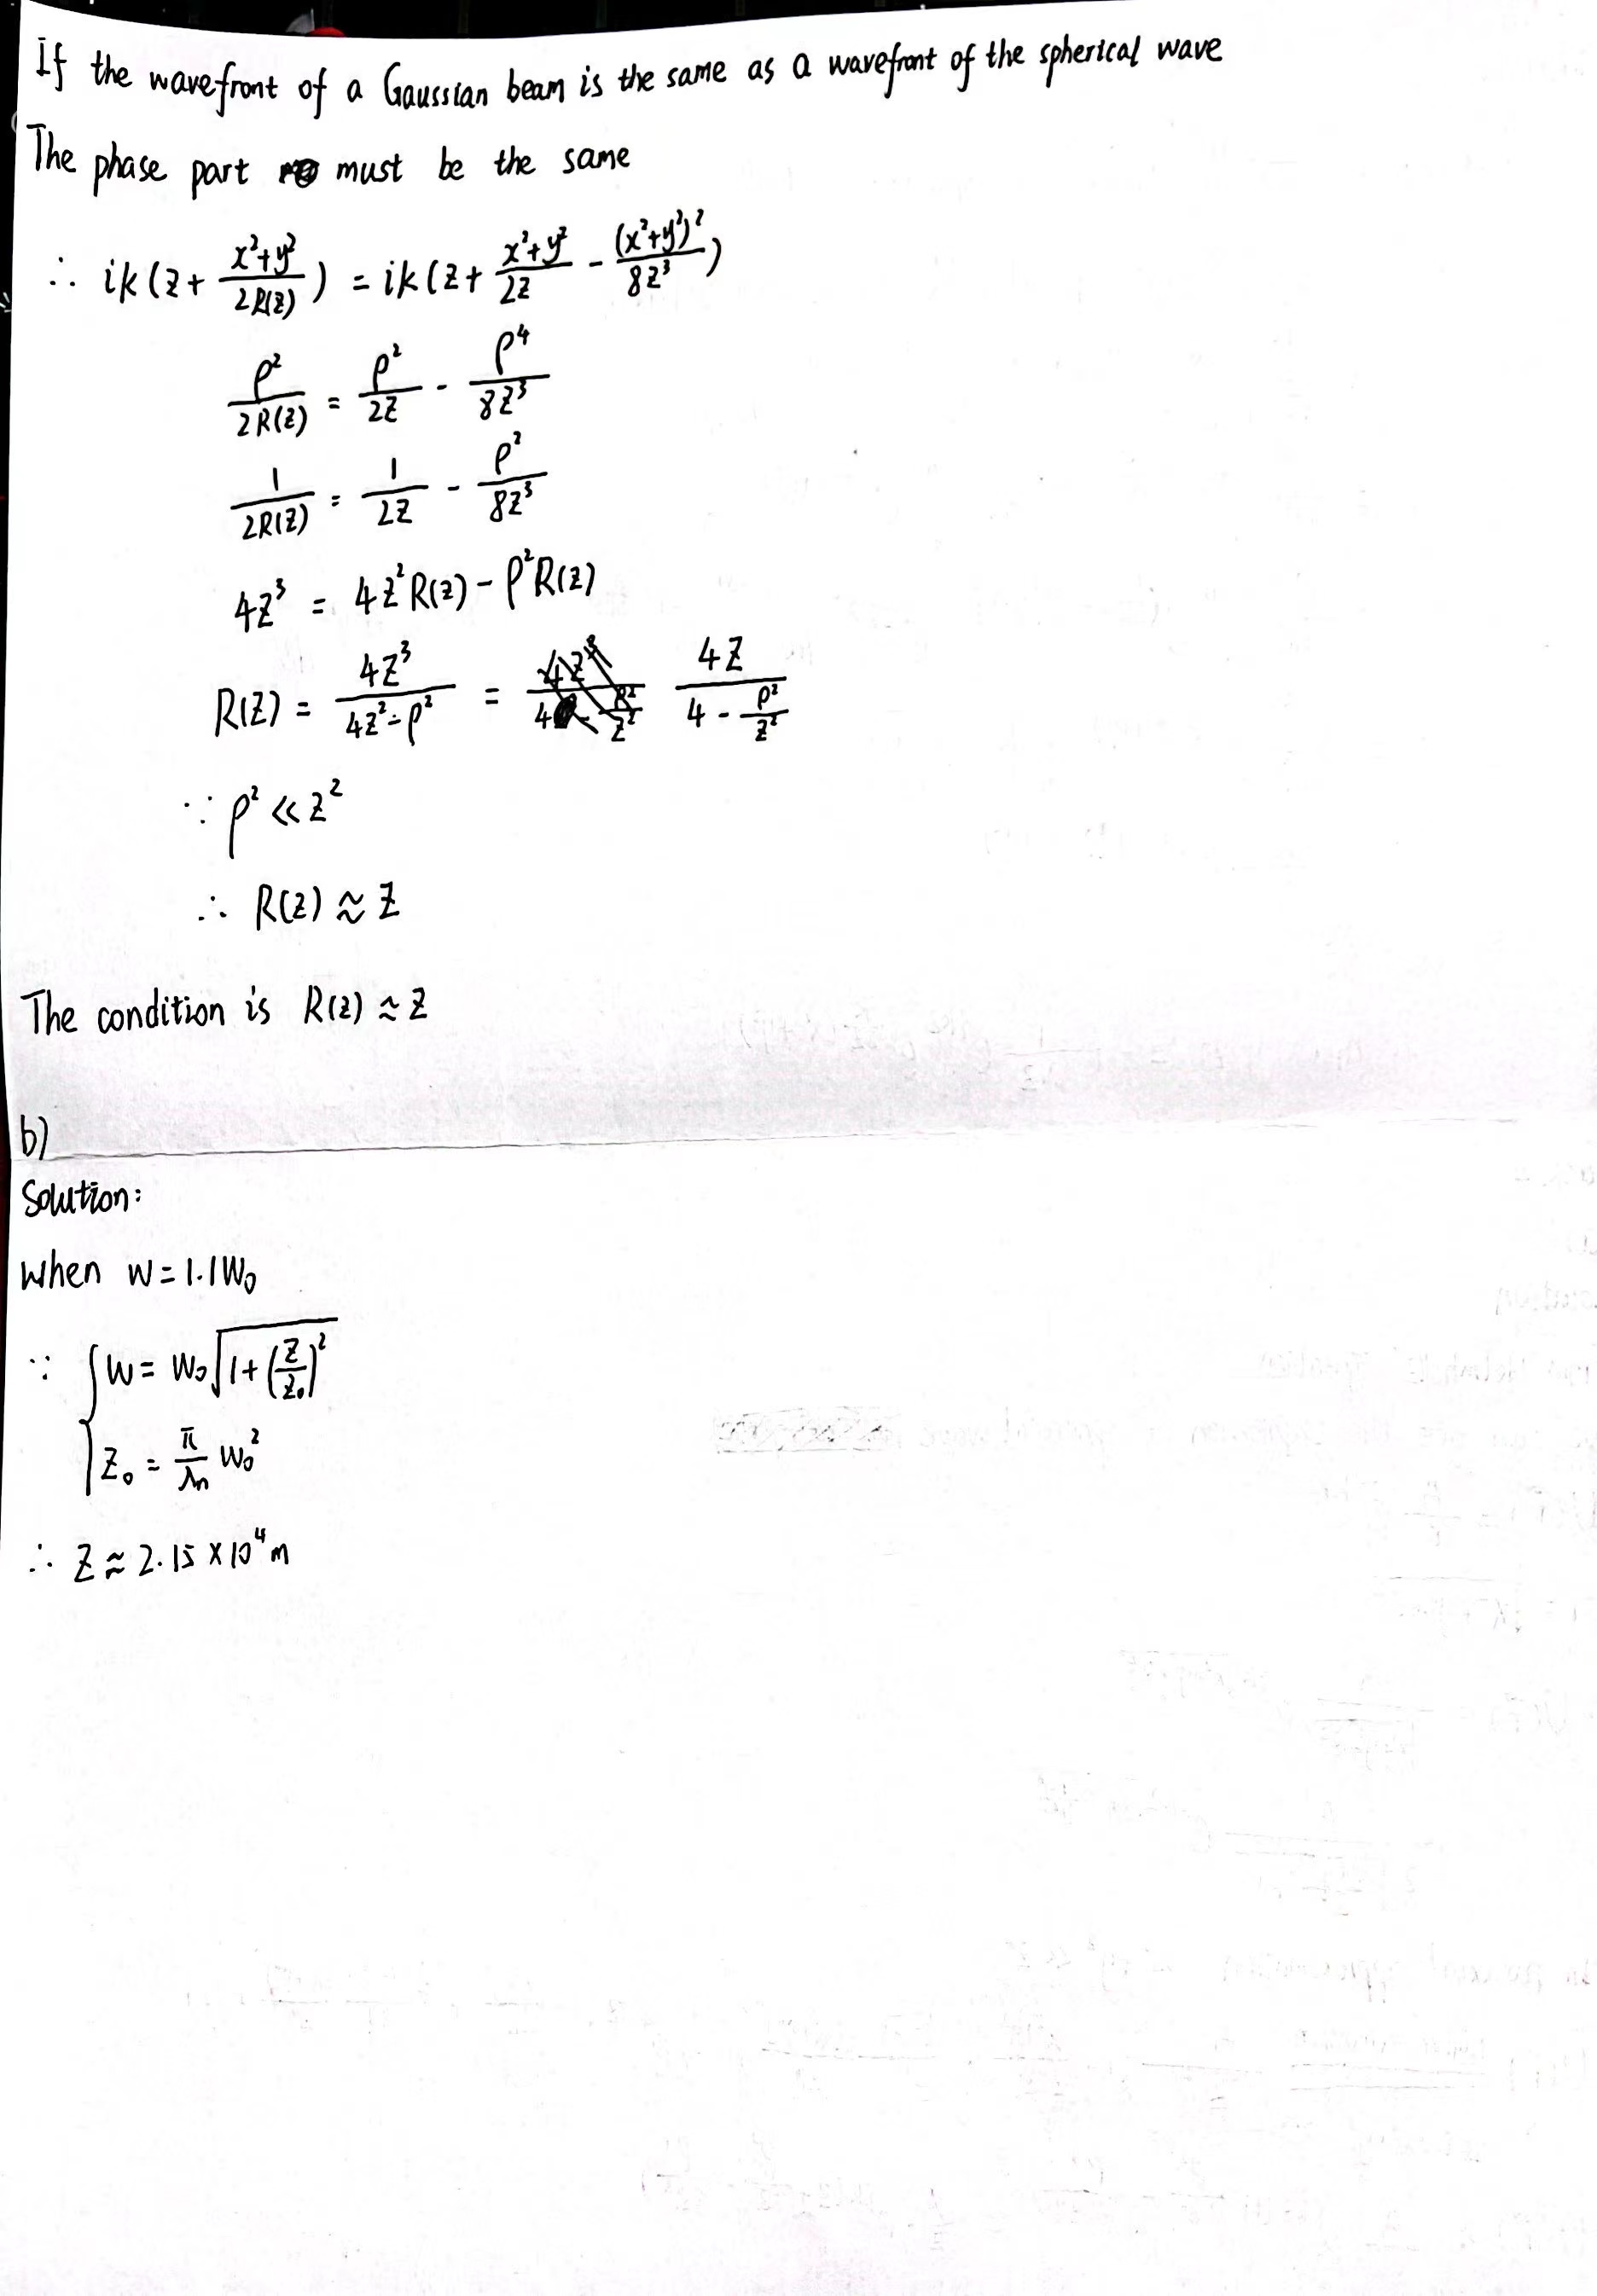 If the wavefront of a Gaussian beam is the same as a wavefront of the spherical wave
The phase part must be the same
∴ ik(z + (x²+y²)/(2R(z))) = ik(z + (x²+y²)/(2z) - (x²+y²)²/(8z³))
ρ²/(2R(z)) = ρ²/(2z) - ρ⁴/(8z³)
1/(2R(z)) = 1/(2z) - ρ²/(8z³)
4z³ = 4z²R(z) - ρ²R(z)
R(z) = 4z³/(4z² - ρ²) = 4z/(4 - ρ²/z²)
∵ ρ² ≪ z²
∴ R(z) ≈ z
The condition is R(z) ≈ z
b)
Solution:
when w = 1.1W₀
∵ { W = W₀√(1 + (z/z₀)²)
z₀ = π/λn W₀²
∴ z ≈ 2.15 × 10⁴ m